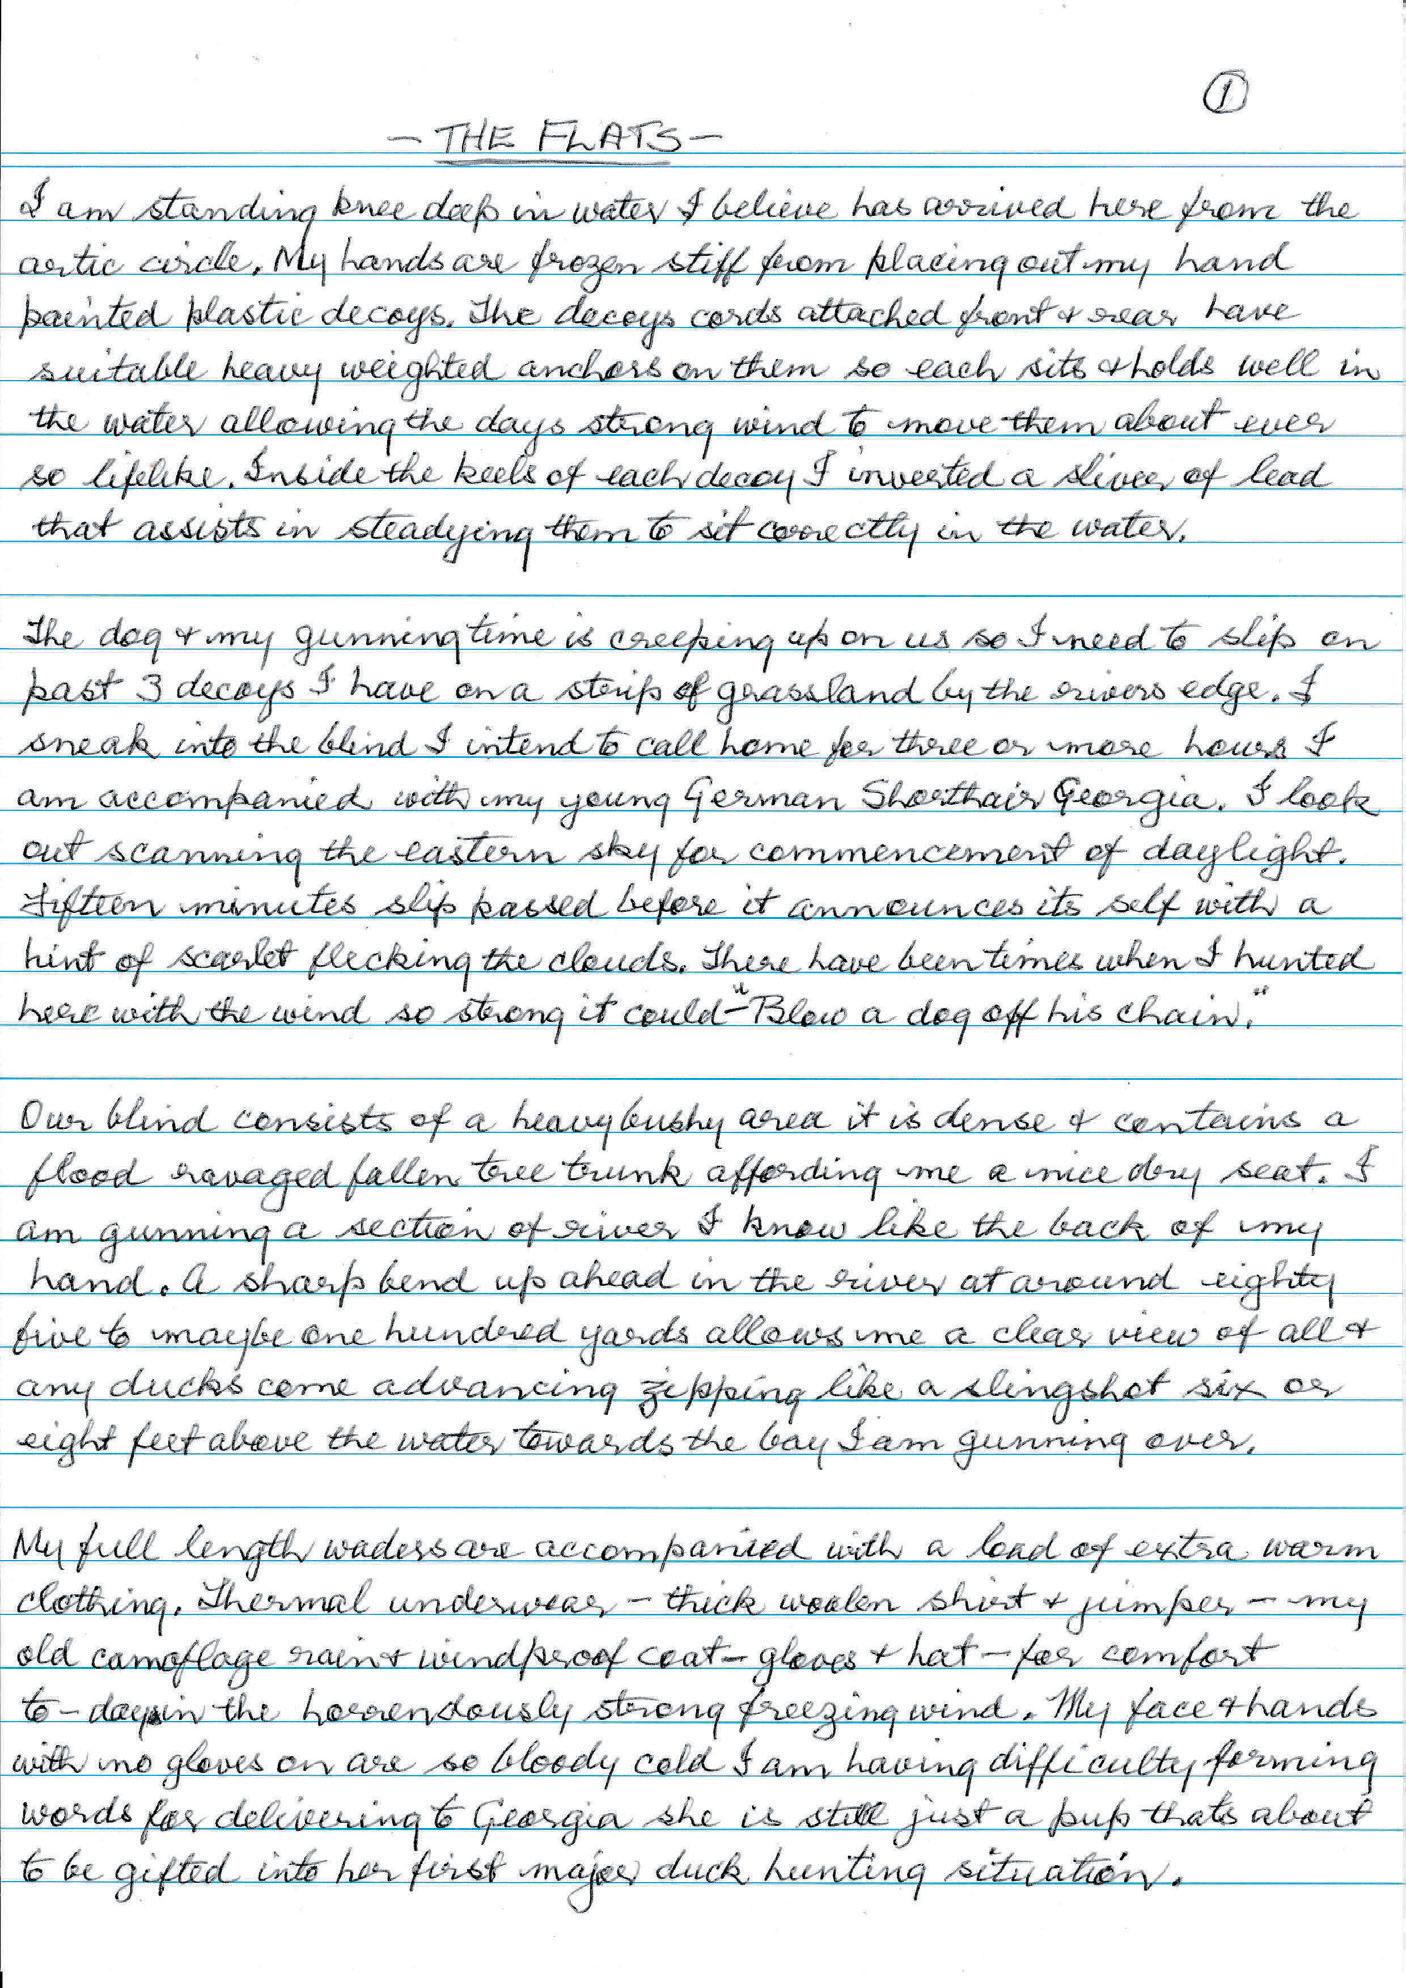 ①
- THE FLATS -
I am standing knee deep in water I believe has arrived here from the
artic circle. My hands are frozen stiff from placing out my hand
painted plastic decoys. The decoys cords attached front & rear have
suitable heavy weighted anchors on them so each sits & holds well in
the water allowing the days strong wind to move them about ever
so lifelike. Inside the keels of each decoy I inverted a sliver of lead
that assists in steadying them to sit correctly in the water.
The dog & my gunning time is creeping up on us so I need to slip on
past 3 decoys I have on a strip of grassland by the rivers edge. I
sneak into the blind I intend to call home for three or more hours I
am accompanied with my young German Shorthair Georgia. I look
out scanning the eastern sky for commencement of daylight.
Fifteen minutes slip passed before it announces its self with a
hint of scarlet flecking the clouds. There have been times when I hunted
here with the wind so strong it could - "Blow a dog off his chain."
Our blind consists of a heavy bushy area it is dense & contains a
flood ravaged fallen tree trunk affording me a nice dry seat. I
am gunning a section of river I know like the back of my
hand. A sharp bend up ahead in the river at around eighty
five to maybe one hundred yards allows me a clear view of all &
any ducks come advancing zipping like a slingshot six or
eight feet above the water towards the bay I am gunning over.
My full length waders are accompanied with a load of extra warm
clothing. Thermal underwear - thick woolen shirt & jumper - my
old camoflage rain & windproof coat - gloves & hat - for comfort
to-day in the horrendously strong freezing wind. My face & hands
with no gloves on are so bloody cold I am having difficulty forming
words for delivering to Georgia she is still just a pup thats about
to be gifted into her first major duck hunting situation.